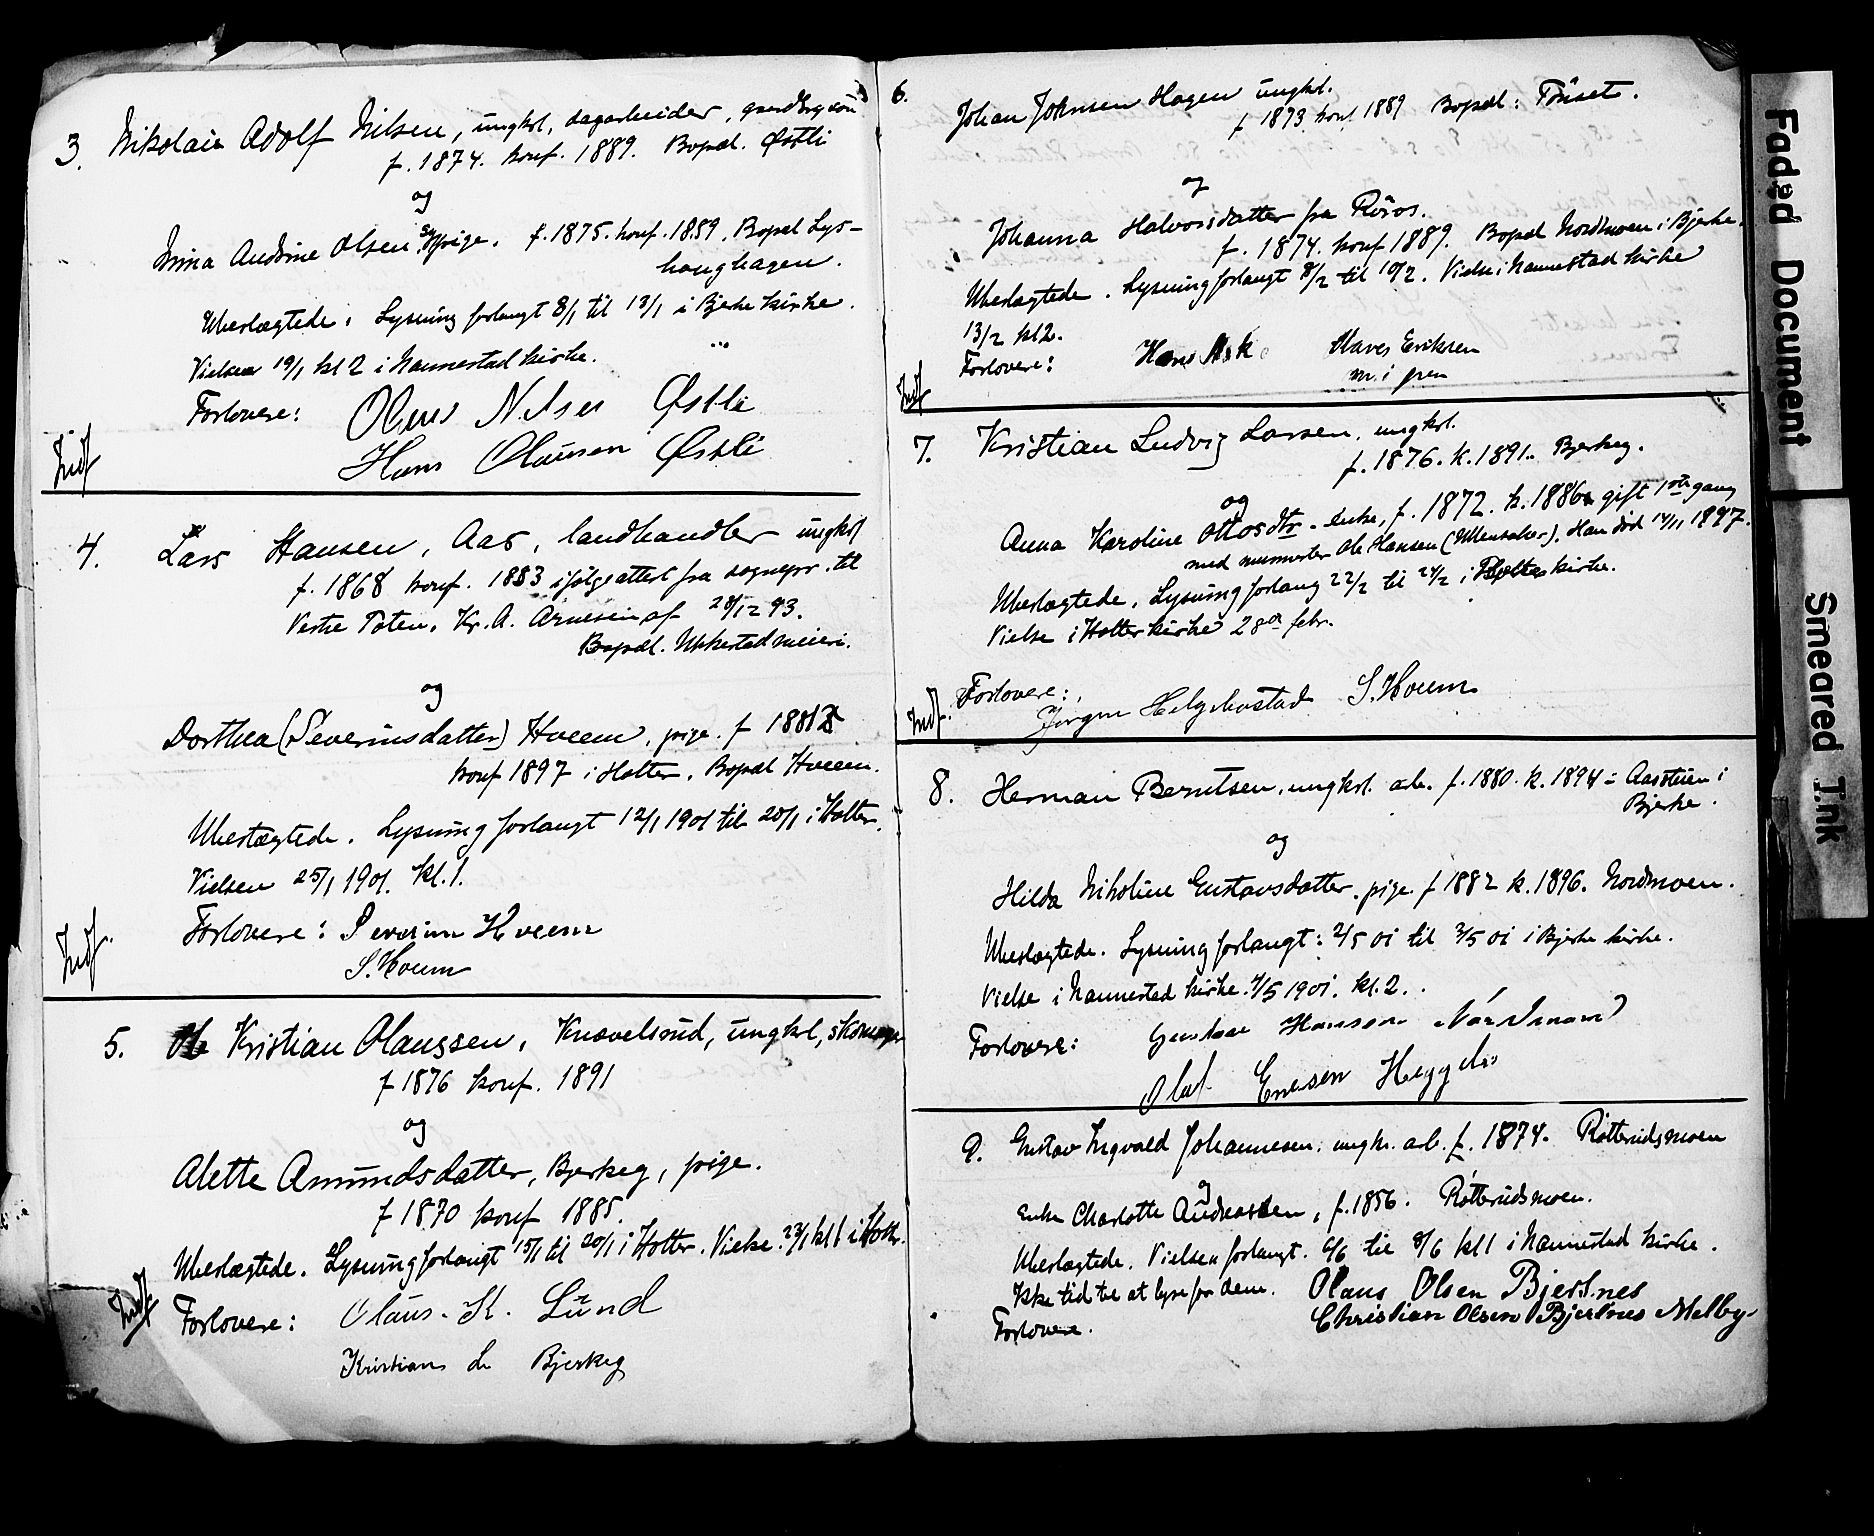 3. Nikolai Adolf Nilsen, ungkl, dagarbeider,
f. 1874. konf. 1889. Bopæl. Østli
og
Olsen pige. f. 1875. konf. 1889. Bopæl Lys-
houghagen.
Ubeslægtede. Lysning forlangt 8/1 til 13/1 i Bjerke kirke.
Vielsen 19/1 kl 2 i Nannestad kirke.
Forlovere: Olaus Nilsen Østli
Hans Olausen Østli
Indf
4. Lars Hansen, Aas, landhandler ungkl
f. 1868 konf. 1883 ifølge attest fra sognepr. til
Vestre Toten, Kr. A. Arnesen af 28/12 93.
Bopæl. Ukkestad meieri.
og
Dorthea (Severinsdatter) Hveem, pige. f 1882
konf 1897 i Holter. Bopæl Hveem.
Ubeslægtede. Lysning forlangt 12/1 1901 til 20/1 i Holter.
Vielsen 25/1 1901. kl. 1.
Forlovere: Severin Hveem
S. Houm
Indf.
5. Kristian Olaussen, Knavelsrud, ungkl, skomager
f 1876 konf. 1891
og
Alette Amundsdatter, Bjerkeg, pige.
f 1870 konf 1885.
Ubeslægtede. Lysning forlangt 15/1 til 20/1 i Holter. Vielse. 23/1 kl 1 i Holter.
Forlovere: Olaus. K. Lund
Kristian Bjerkeg
Indf
6. Johan Johnsen Hagen ungkl.
f 1873 konf 1889 Bopæl: Tönset.
og
Johanna Halvorsdatter fra Röros.
f. 1874. konf 1889. Bopæl Nordmoen i Bjerke.
Ubeslægtede. Lysning forlangt 8/2 til 10/2. Vielse i Nannestad kirke
13/2 kl 2.
Forlovere: Hans Ask Maves Eriksen
m. i pen
Indf
7. Kristian Ludvig Larsen, ungkl.
f. 1876. k. 1891. Bjerkeg.
og
Anna Karoline Ottosdtr - enke, f. 1872. k. 1886 gift 1ste gang
med murmester Ole Hansen (Ullensaker). Han död 14/11 1897.
Ubeslægtede. Lysning forlang 22/2 til 24/2 i Holter kirke.
Vielse i Holter kirke 28de febr.
Forlovere: Jørgen Helgebostad S. Houm
Indf.
8. Herman Berntsen, ungkl. arb. f. 1880. k. 1894 - Aasstuen i
Bjerke.
og
Hilda Nikoline Gustavsdatter. pige. f 1882 k. 1896. Nordmoen.
Ubeslægtede. Lysning forlangt: 2/5 01 til 3/5 01 i Bjerke kirke.
Vielse i Nannestad kirke. 4/5 1901. kl. 2.
Forlovere: Gustav Hansen Nordmoen
Olaf Enersen
9. Gustav Ingvald Johannesen. ungk. arb. f. 1874. Rotterudsmoen
og
Enke Charlotte Andreassen, f. 1856. Rotterudsmoen.
Ubeslægtede. Vielsen forlangt. 6/6 til 8/6 kl 1 i Nannestad kirke.
Ikke tid til at lyse for dem. Olaus Olsen Bjertnes
Forlovere. Christian Olsen Bjertnes Melby.
Faded Document
Smeared Ink